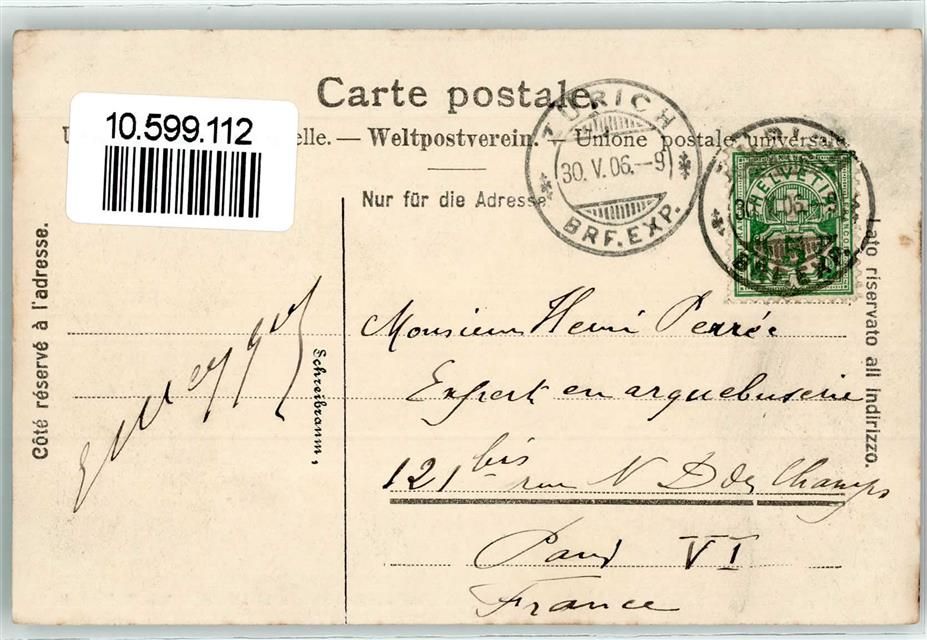 Carte postale.
10.599.112
elle. — Weltpostverein. — Unione postale universale
Nur für die Adresse
ZÜRICH
30. V. 06. – 9
BRF. EXP.
HELVETIA
BRF. EXP.
Côté réservé à l'adresse.
Lato riservato all indirizzo.
Schreibraum,
Monsieur Henri Perrée
Expert en arquebuserie
121 bis rue N D des Champs
Paris VI
France